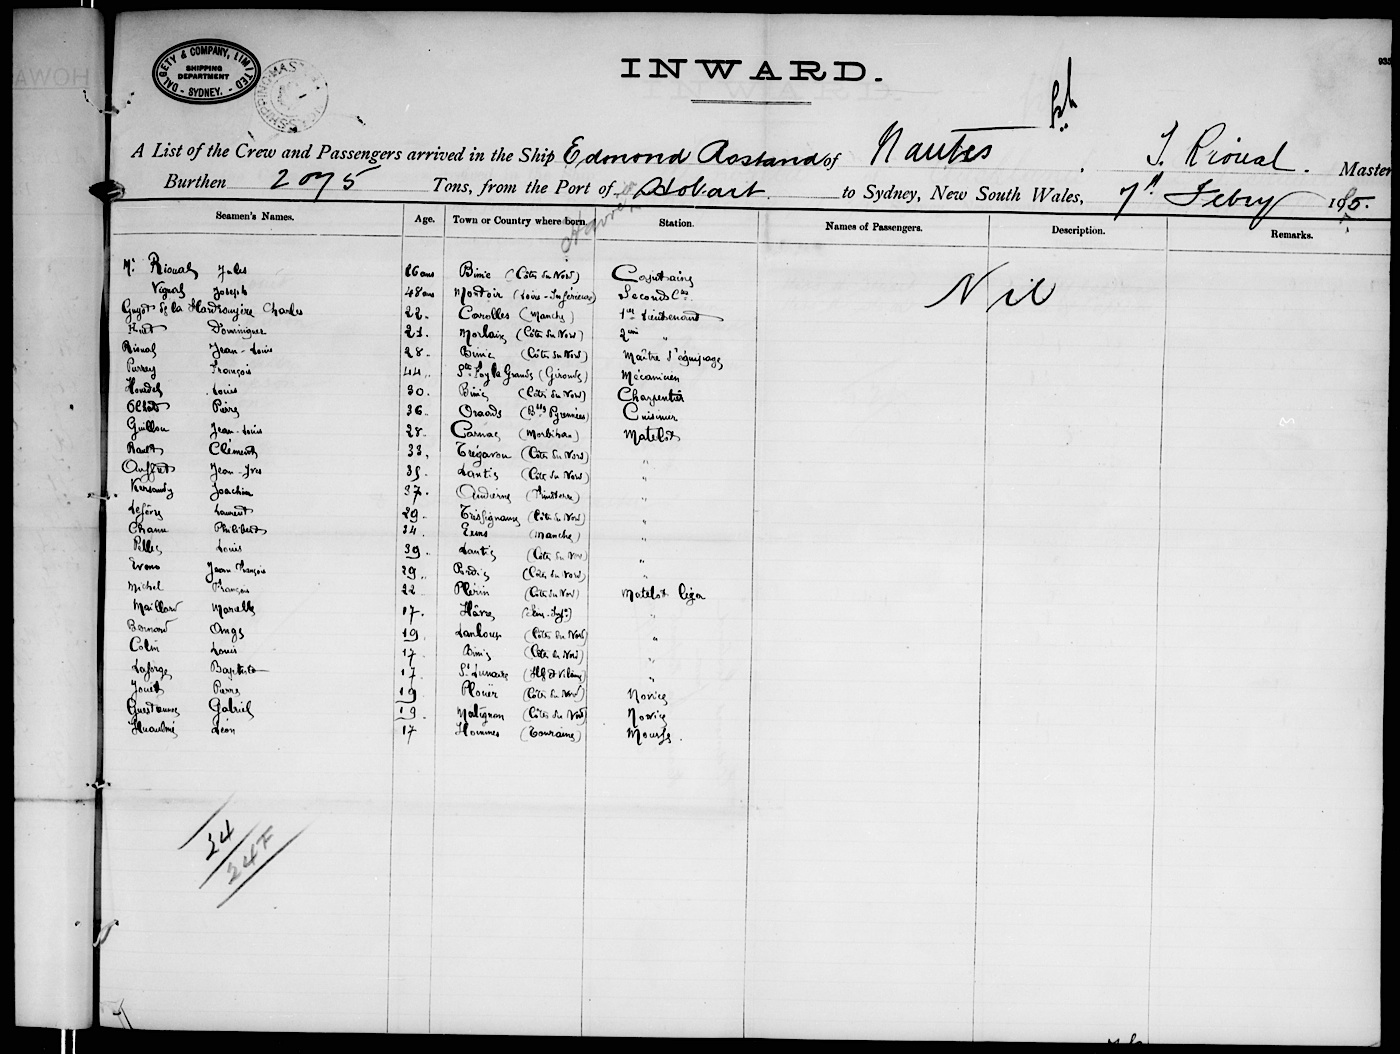 DALGETY & COMPANY, LIMITED
SHIPPING
DEPARTMENT
- SYDNEY. -
INWARD.
935
A List of the Crew and Passengers arrived in the Ship Edmond Rostand of Nantes J. Rioual. Master
Burthen 2075 Tons, from the Port of Hobart to Sydney, New South Wales, 7th Febry 1905.
Havre
Seamen's Names. Age. Town or Country where born. Station. Names of Passengers. Description. Remarks.
Mr. Rioual Jules 26 ans Binic (Côtes du Nord) Capitaine Nil
Vignal Joseph 48 ans Montoir (Loire-Inférieure) Second Cne
Guyot de la Hardrouyère Charles 22. Carolles (Manche) 1er Lieutenant
Dominique 21. Morlaix (Côtes du Nord) 2me "
Rioual Jean-Louis 28. Binic (Côtes du Nord) Maître d'équipage
François 44. Ste Foy la Grande (Gironde) Mécanicien
Louis 30. Binic (Côtes du Nord) Charpentier
Pierre 36. (Bses Pyrénées) Cuisinier
Guillou Jean-Louis 28. Carnac (Morbihan) Matelot
Clément 33. (Côtes du Nord) "
Auffret Jean-Yves 35. Lantic (Côtes du Nord) "
Joachim 37. Audierne (Finistère) "
Laurent 29. (Côtes du Nord) "
Philibert 34. (Manche) "
Louis 39. Lantic (Côtes du Nord) "
Jean François 29. (Côtes du Nord) "
Michel François 22 Plérin (Côtes du Nord) Matelot léger
Maillard Marcelle 17. Hâvre (Seine-Infre) "
Bernard Ange 19. Lanloup (Côtes du Nord) "
Colin Louis 17 Binic (Côtes du Nord) "
Laforge Baptiste 17. St Lunaire (Ille et Vilaine) "
Pierre 19 Plouër (Côtes du Nord) Novice
Gabriel 19. Matignon (Côtes du Nord) Novice
Léon 17 Hommes (Touraine) Mousse.
24
24 F